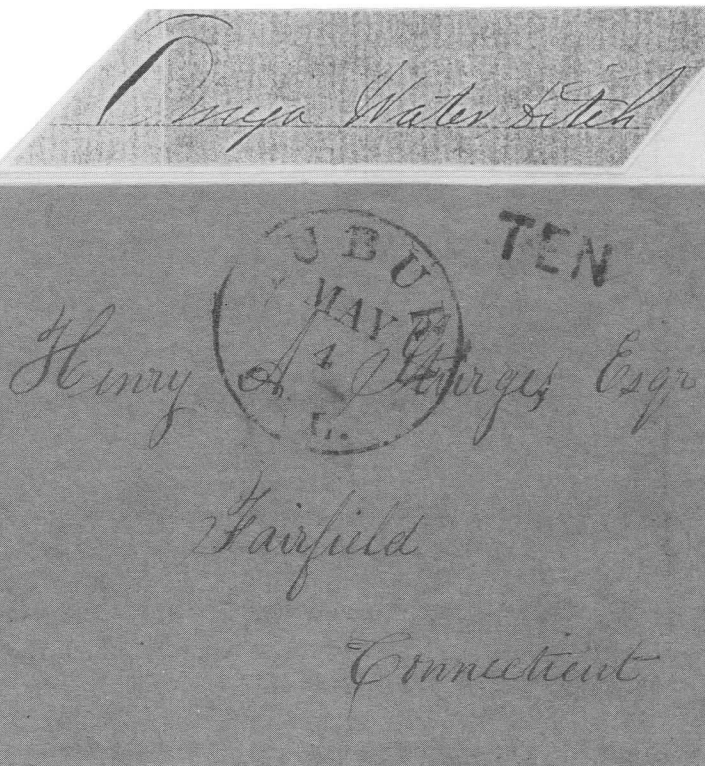 Omega Water Ditch
UBUR
TEN
MAY
1
L.
Henry A. Sturges Esqr
Fairfield
Connecticut